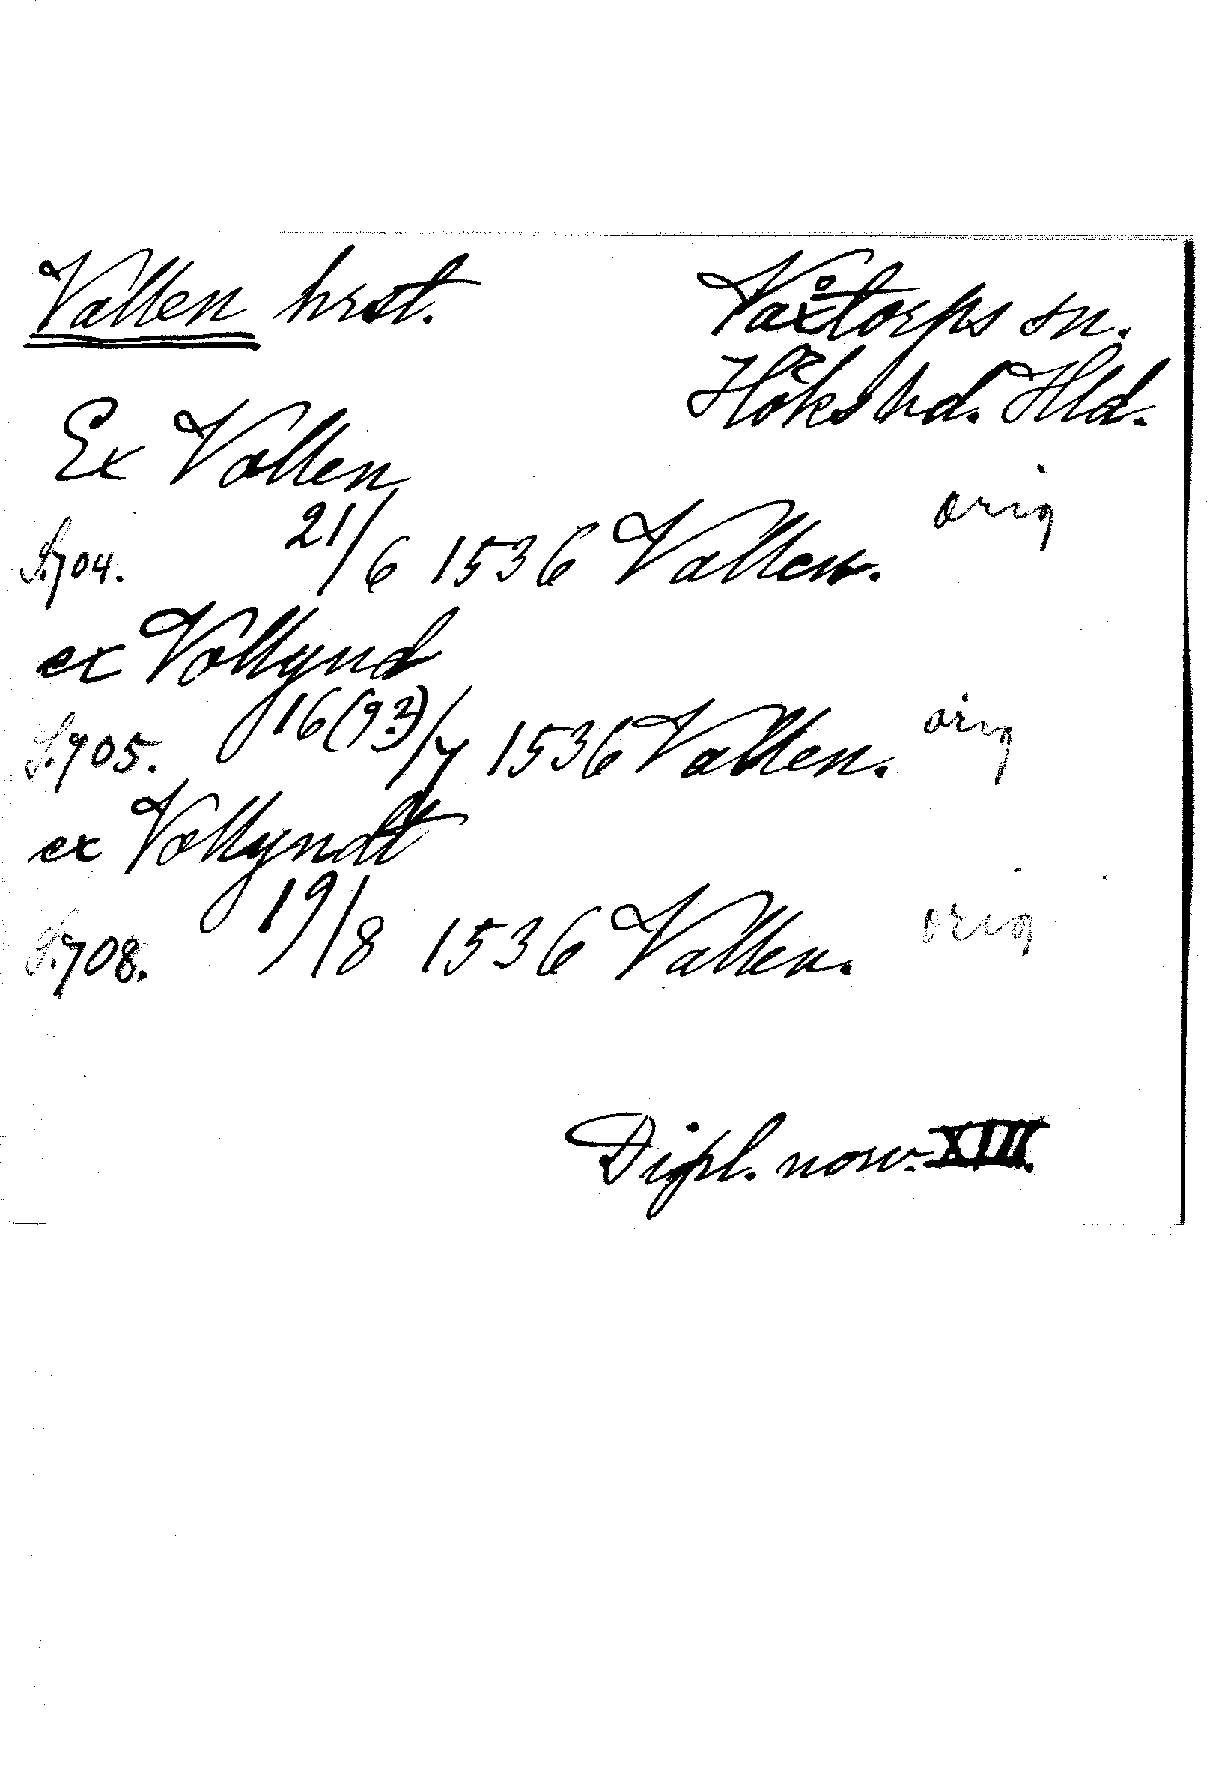 Vallen hrst.
Våxtorps sn.
Höks hd. Hld.
Ex Vallen
S. 704. 21/6 1536 Vallen. orig
ex Vollgund
S. 705. 16(93?)/7 1536 Vallen. orig
ex Vollgyndt
S. 708. 19/8 1536 Vallen. orig
Dipl. norv. XIII.